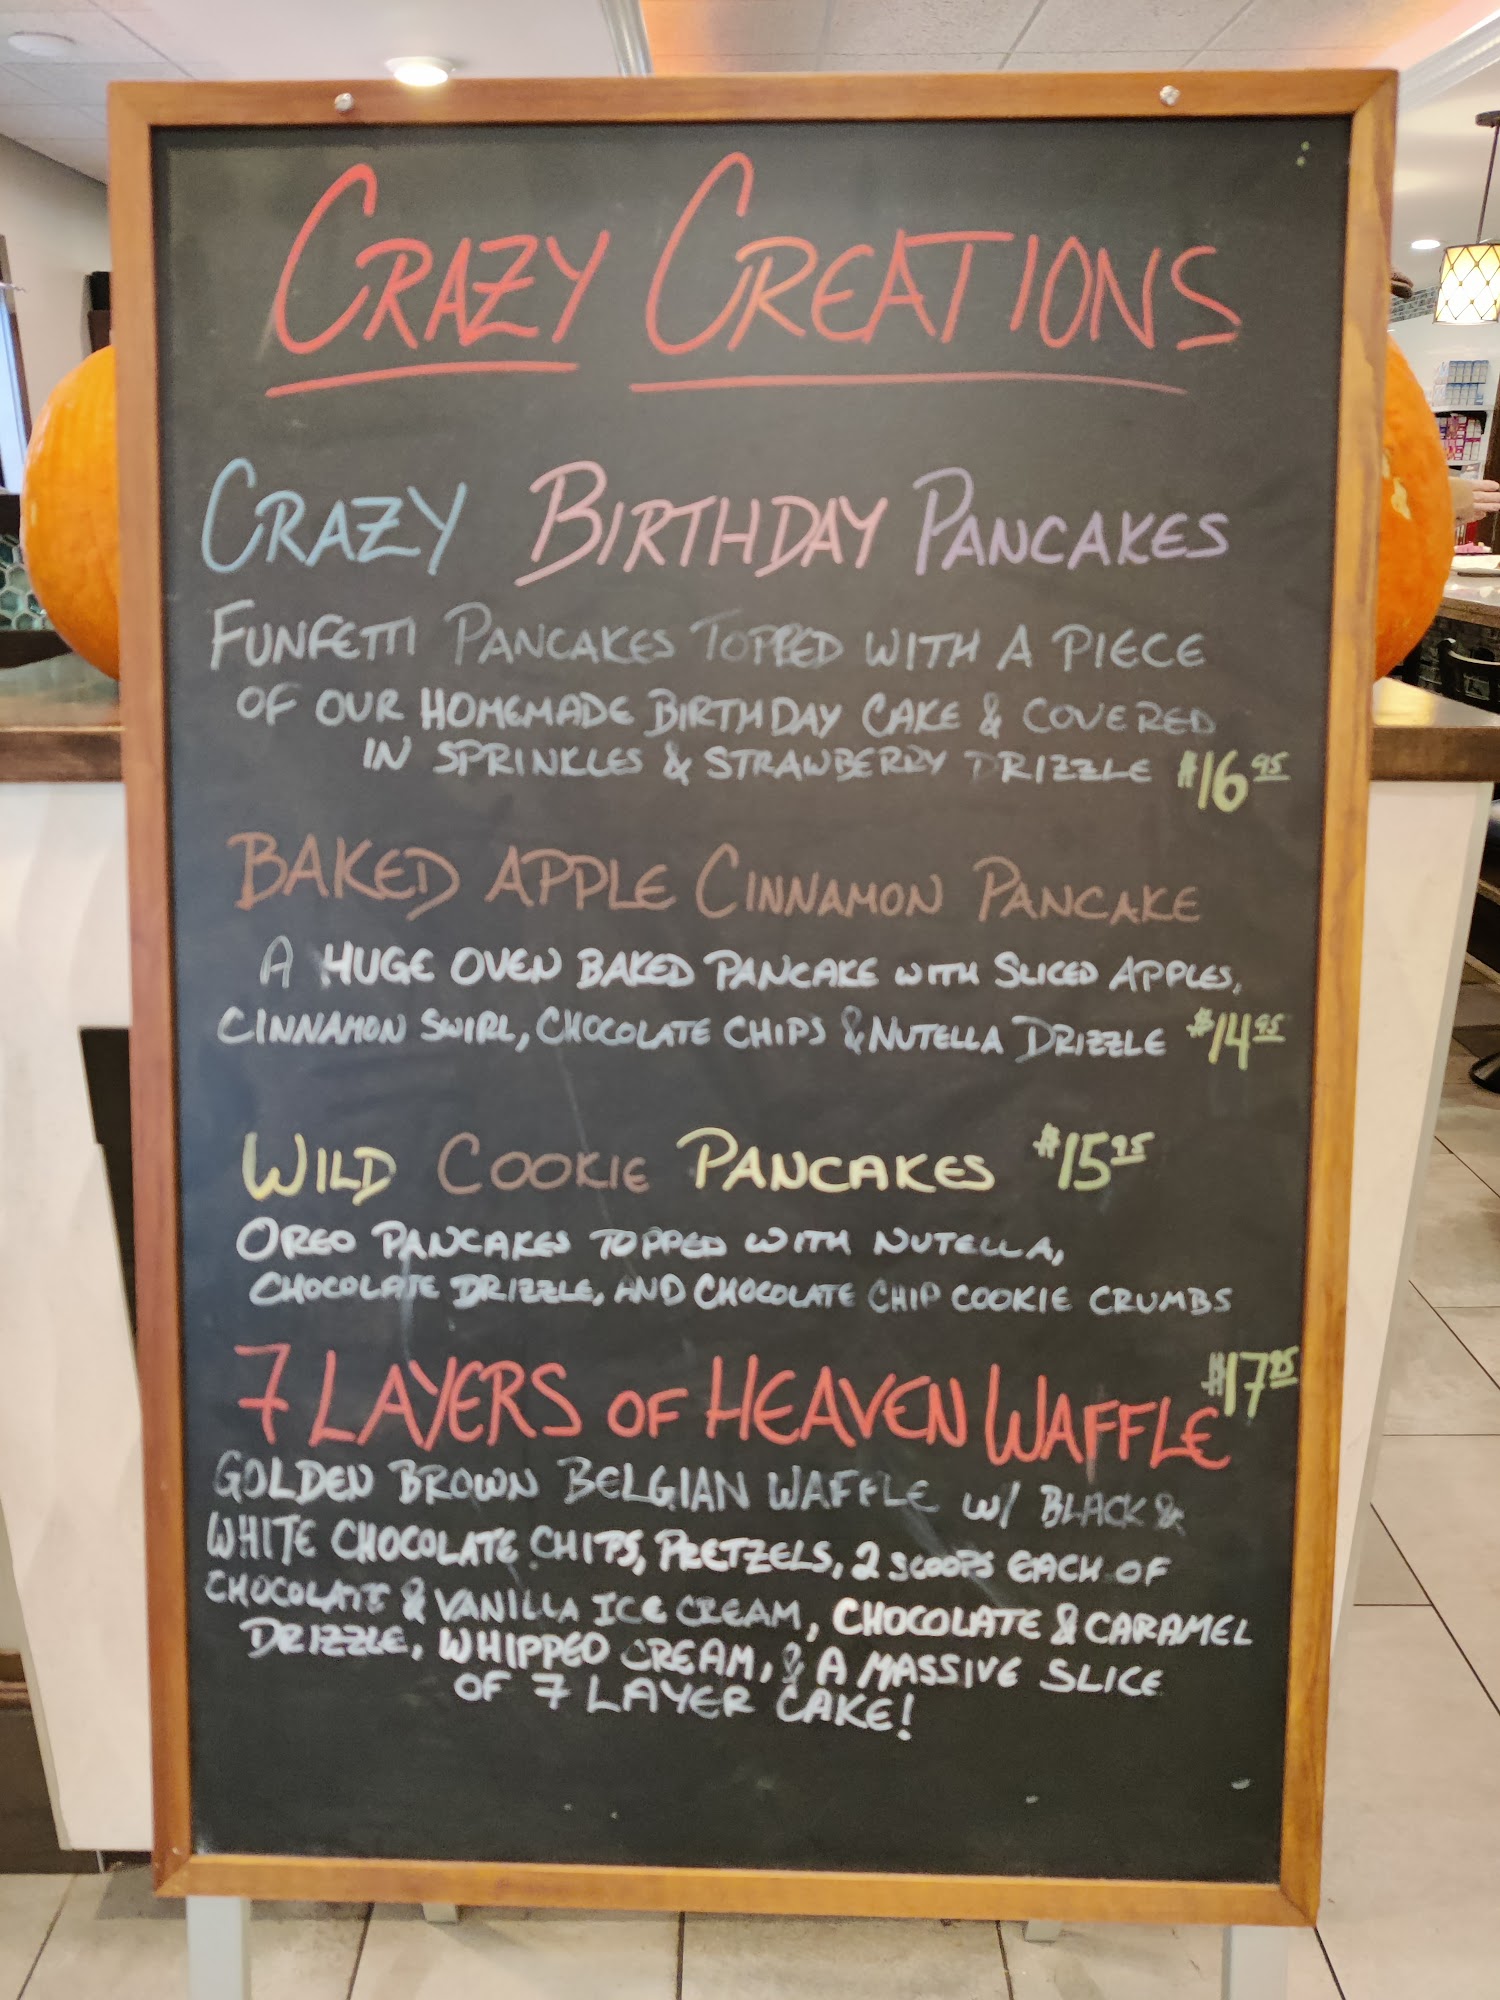 CRAZY CREATIONS
CRAZY BIRTHDAY PANCAKES
FUNFETTI PANCAKES TOPPED WITH A PIECE
OF OUR HOMEMADE BIRTHDAY CAKE & COVERED
IN SPRINKLES & STRAWBERRY DRIZZLE $16.95
BAKED APPLE CINNAMON PANCAKE
A HUGE OVEN BAKED PANCAKE WITH SLICED APPLES,
CINNAMON SWIRL, CHOCOLATE CHIPS & NUTELLA DRIZZLE $14.95
WILD COOKIE PANCAKES $15.95
OREO PANCAKES TOPPED WITH NUTELLA,
CHOCOLATE DRIZZLE, AND CHOCOLATE CHIP COOKIE CRUMBS
7 LAYERS OF HEAVEN WAFFLE $17.95
GOLDEN BROWN BELGIAN WAFFLE W/ BLACK &
WHITE CHOCOLATE CHIPS, PRETZELS, 2 SCOOPS EACH OF
CHOCOLATE & VANILLA ICE CREAM, CHOCOLATE & CARAMEL
DRIZZLE, WHIPPED CREAM, & A MASSIVE SLICE
OF 7 LAYER CAKE!